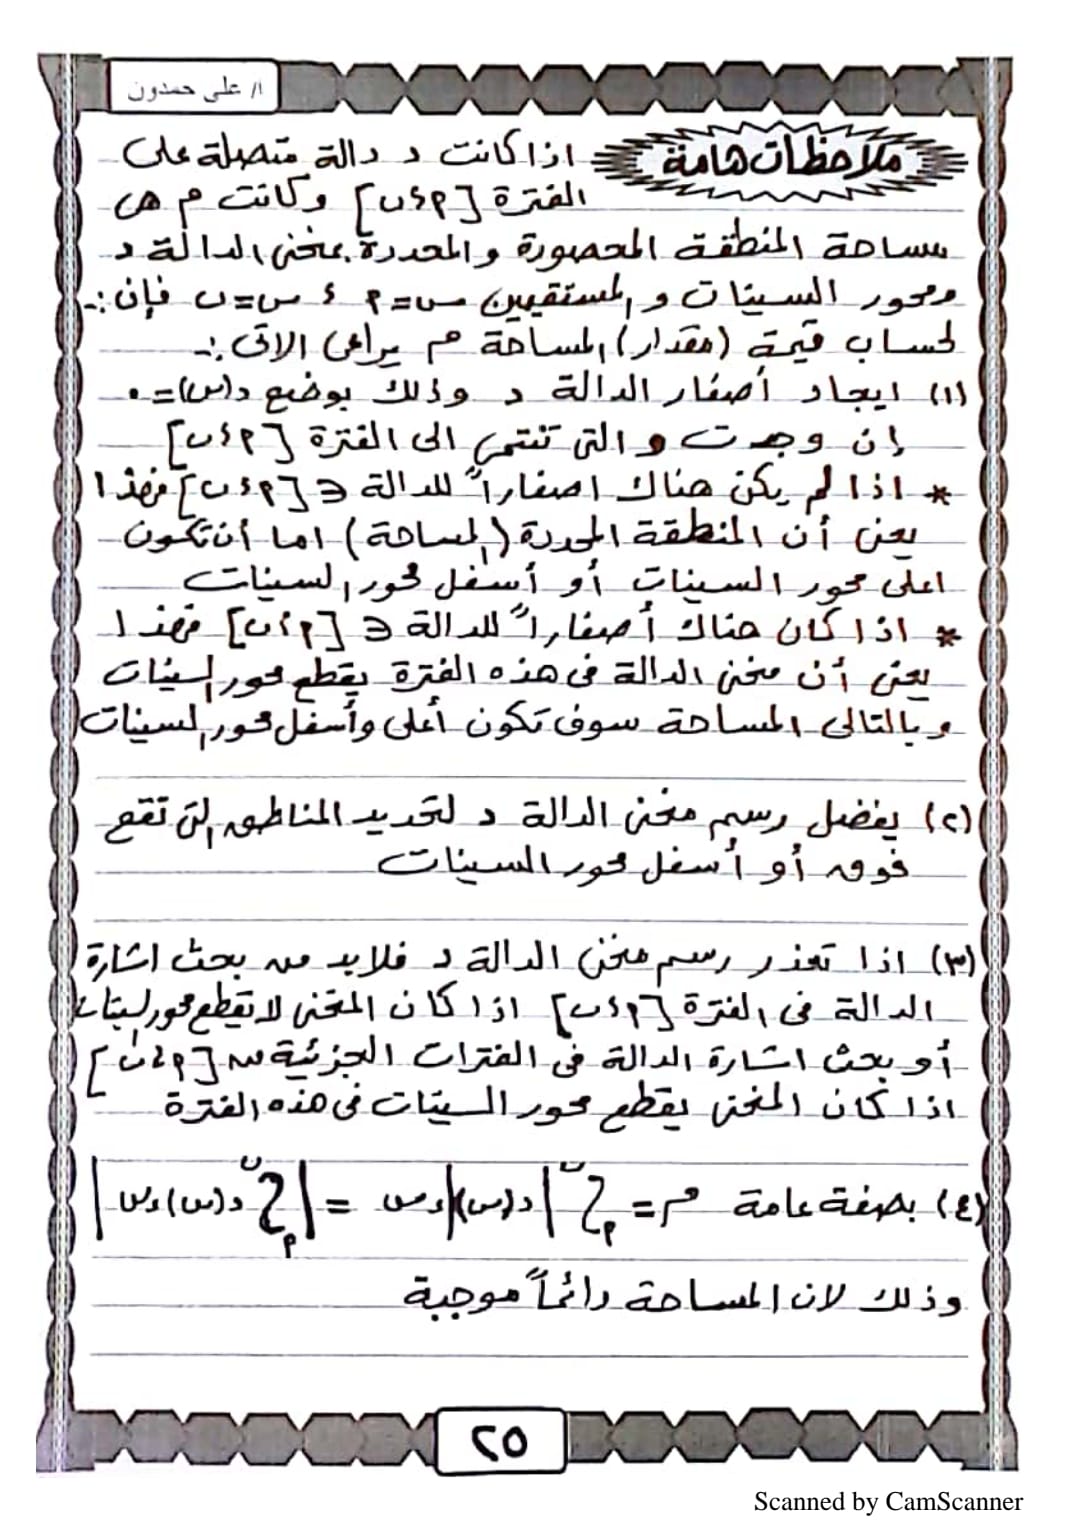 ا/ على حمدون
ملاحظات هامة اذا كانت د دالة متصلة على
الفترة [م،ب] وكانت م هى
مساحة المنطقة المحصورة والمحددة بمنحنى الدالة د
ومحور السينات والمستقيمين س=م ، س=ب فإن:-
لحساب قيمة (مقدار) المساحة م يراعى الاتى:-
(١) ايجاد أصفار الدالة د وذلك بوضع د(س)=٠
إن وجدت والتى تنتمى الى الفترة [م،ب]
* اذا لم يكن هناك اصفاراً للدالة ∈ [م،ب] فهذا
يعنى أن المنطقة المحددة (المساحة) اما أن تكون
اعلى محور السينات أو أسفل محور السينات
* اذا كان هناك أصفاراً للدالة ∈ [م،ب] فهذا
يعنى أن منحنى الدالة فى هذه الفترة يقطع محور السينات
وبالتالى المساحة سوف تكون أعلى وأسفل محور السينات
(٢) يفضل رسم منحنى الدالة د لتحديد المناطق التى تقع
فوق أو أسفل محور السينات
(٣) اذا تعذر رسم منحنى الدالة د فلابد من بحث اشارة
الدالة فى الفترة [م،ب] اذا كان المنحنى لا يقطع محور السينات
أو بحث اشارة الدالة فى الفترات الجزئية من [م،ب]
اذا كان المنحنى يقطع محور السينات فى هذه الفترة
(٤) بصفة عامة م = ∫م^ب |د(س)| ءس = |∫م^ب د(س) ءس|
وذلك لان المساحة دائماً موجبة
٢٥
Scanned by CamScanner